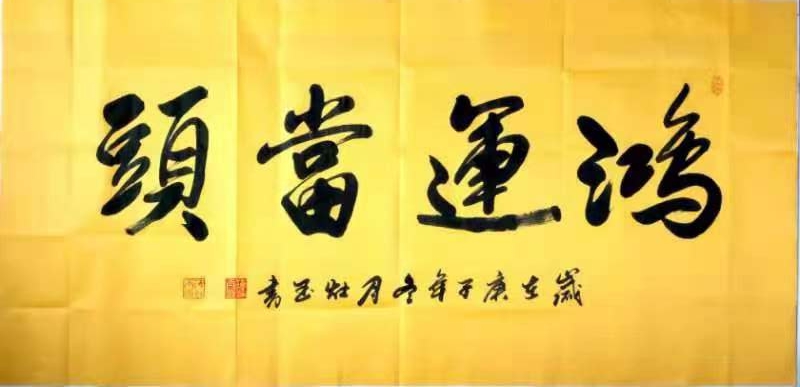 鴻運當頭
歲在庚子年冬月壮書